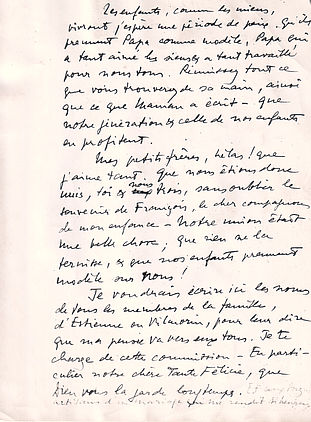 Les enfants, comme les miens,
vivront j'espère une période de paix. Qu'ils
prennent Papa comme modèle, Papa qui
a tant aimé les siens, a tant travaillé
pour nous tous. Réunissez tout ce
que vous trouverez de sa main, ainsi
que ce que Maman a écrit - que
notre génération et celle de nos enfants
en profitent.
Mes petits frères, hélas ! que
j'aime tant. Que nous étions donc
unis, toi et nous trois, sans oublier le
souvenir de François, le cher compagnon
de mon enfance - Notre union était
une belle chose ; que rien ne la
ternisse, et que nos enfants prennent
modèle sur nous !
Je voudrais écrire ici les noms
de tous les membres de la famille
d'Estienne ou Vilmorin, pour leur dire
que ma pensée va vers eux tous. Je te
charge de cette commission - En parti-
culier notre chère Tante Félicie, que
Dieu vous la garde longtemps.